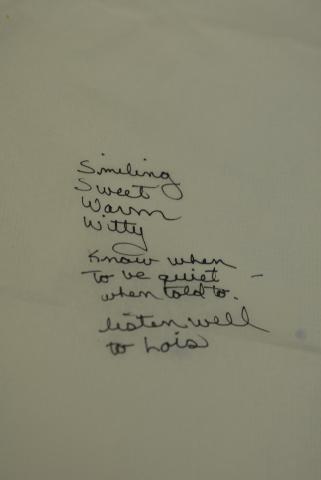 Smiling
Sweet
Warm
Witty
Know when
to be quiet –
when told to.
listen well
to Lois